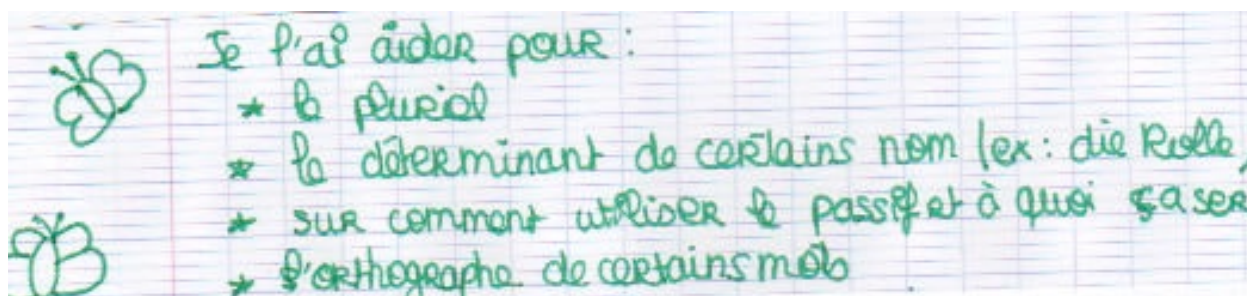 Je l'ai aider pour :
* le pluriel
* le déterminant de certains nom (ex : die Rolle,
* sur comment utiliser le passif et à quoi ça ser
* l'orthographe de certains mots